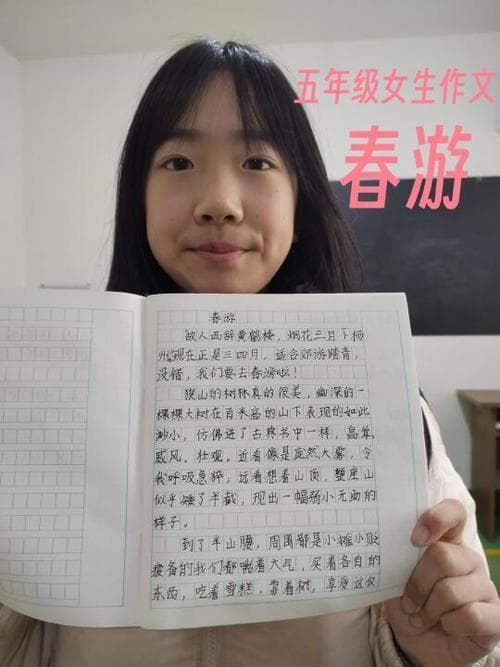 五年级女生作文
春游
春游
故人西辞黄鹤楼，烟花三月下扬
州，现在正是三四月，适合郊游踏青，
没错，我们要去春游啦！
狼山的树林真的很美，幽深的一
棵棵大树在百米高的山下表现的如此
渺小，仿佛进了古典书中一样，高耸、
威风、壮观。近看像是庞然大雾，令
我呼吸急猝；远看想着山顶，整座山
似乎矮了半截，现出一幅弱小无助的
样子。
到了半山腰，周围都是小摊小贩
疲备的我们都喘着大气，买着各自的
东西，吃着雪糕，靠着树，享受这仅